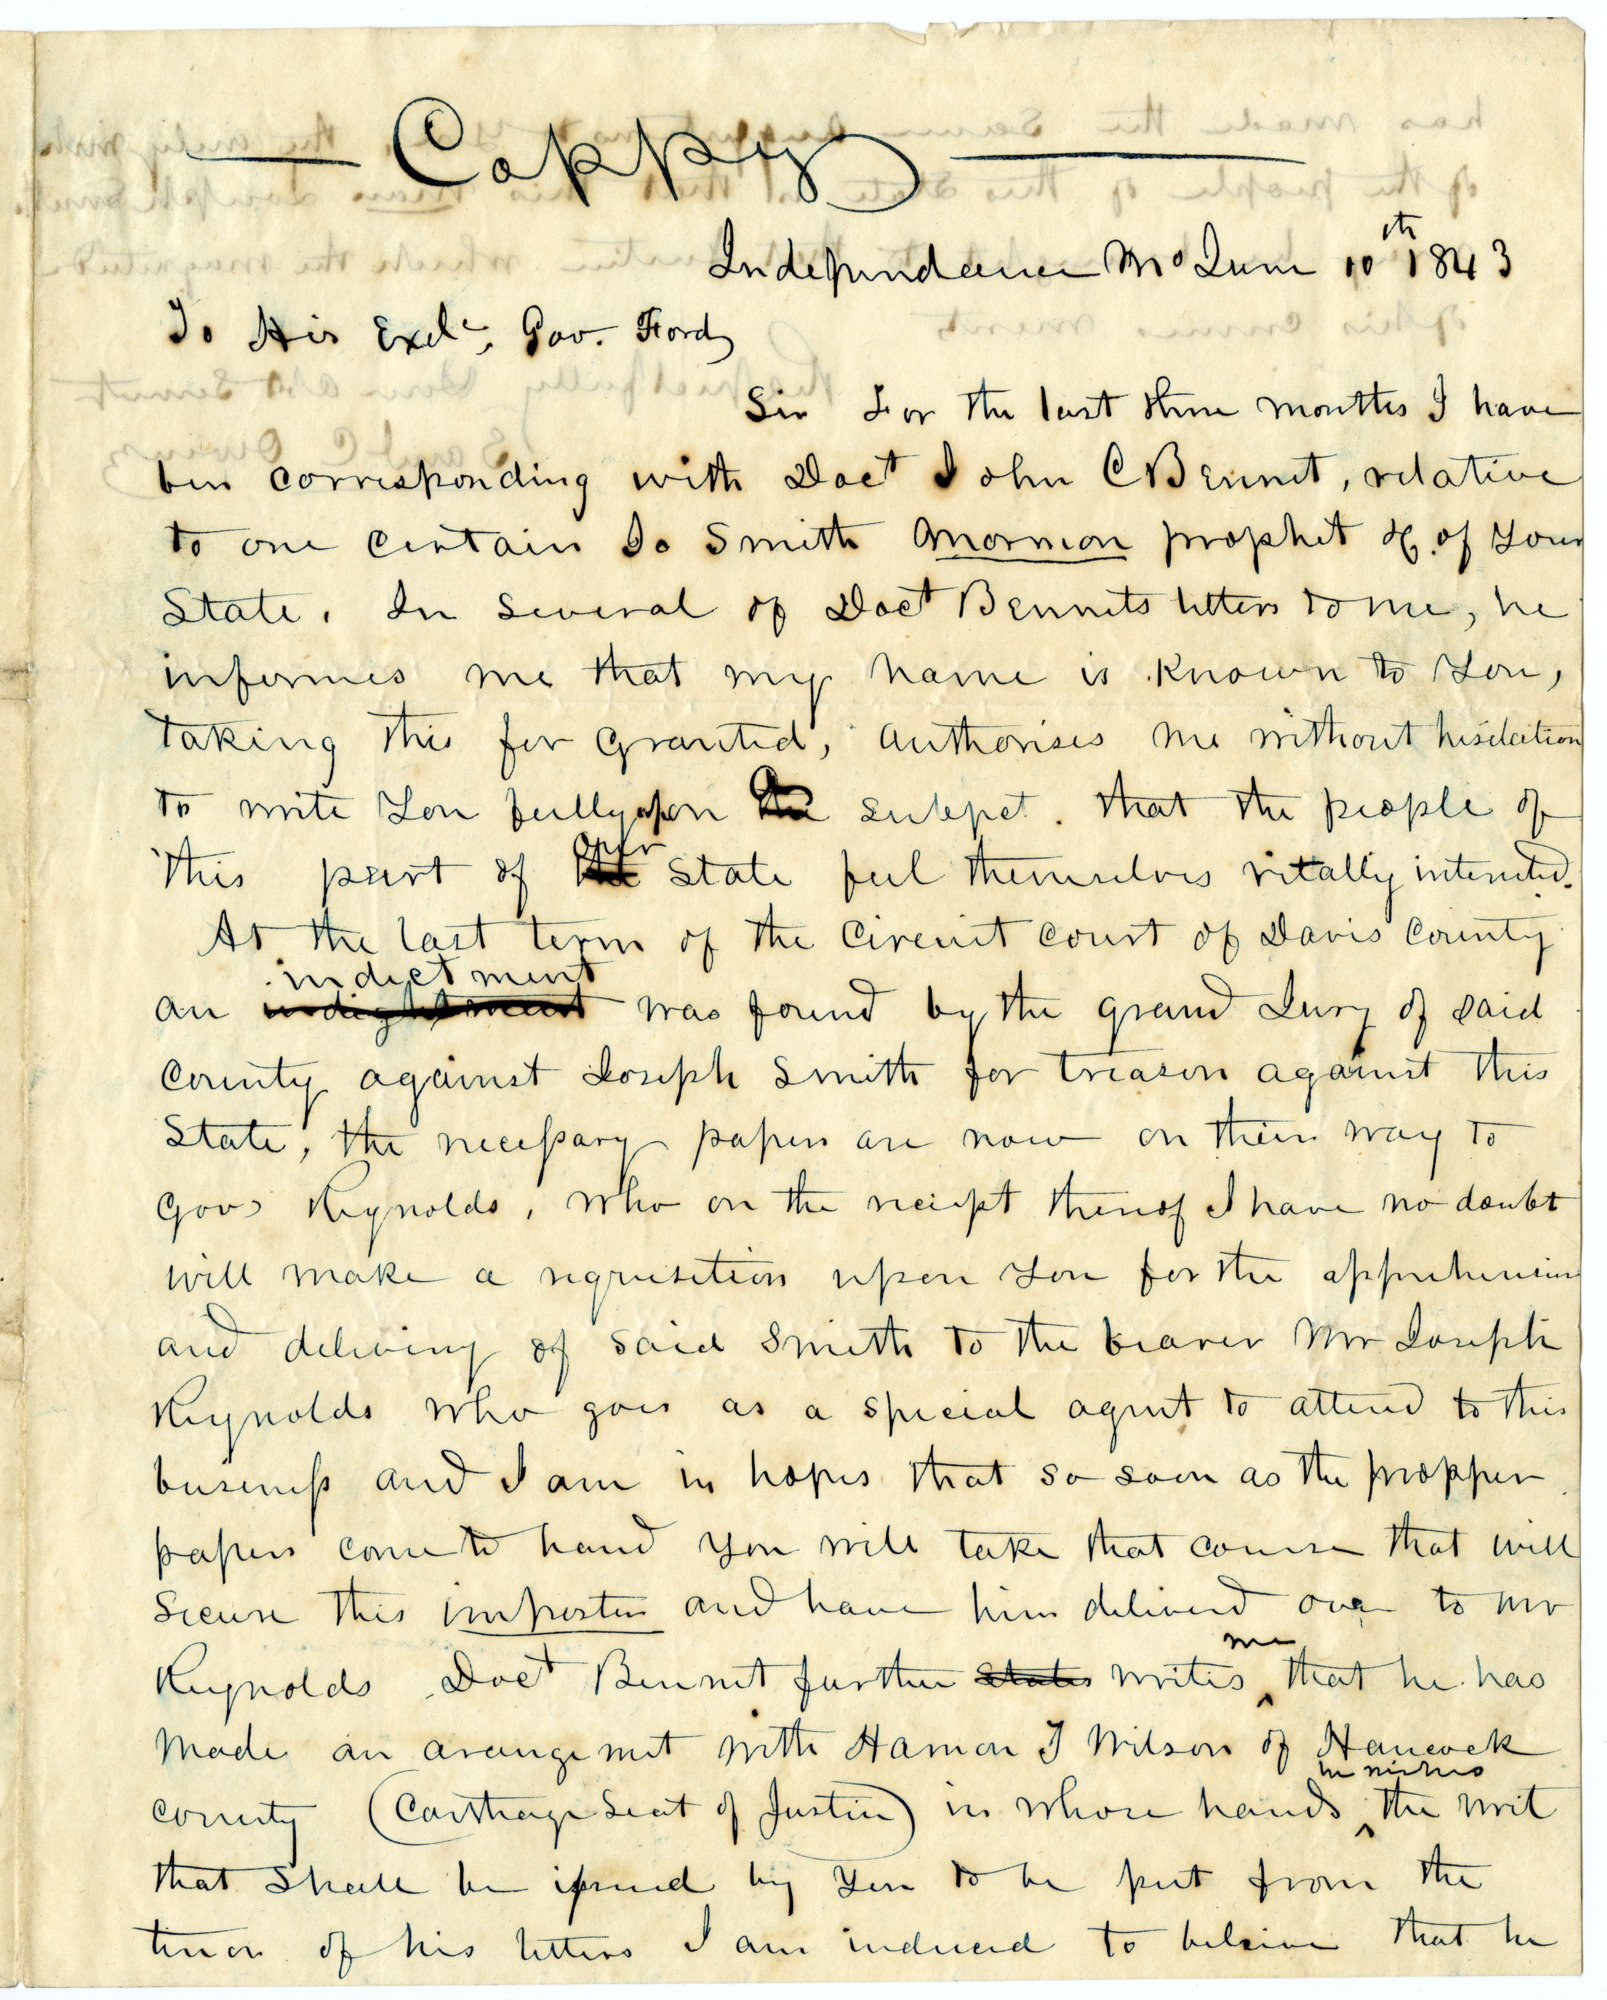 Coppy
Independence Mo June 10th 1843
To His Excl, Gov. Ford,
Sir For the last three months I have
ben corresponding with Doct John C Bennet, relative
to one certain Jo Smith Mormon prophet &c. of Your
State. In several of Doct Bennets letters to me, he
informes me that my name is known to You,
taking this for granted, authorises me without hisitation
to write You fully upon a subject. that the people of
this part of our State feel themselves vitally interested.
At the last term of the Circuit court of Davis County
indictment
an indightment was found by the grand Jury of said
County against Joseph Smith for treason against this
State, the necessary papers are now on their way to
Gov Reynolds, who on the reciept thereof I have no doubt
will make a requisition upon You for the apprehension
and delivery of said Smith to the bearer Mr Joseph
Reynolds who goes as a special agent to attend to this
business and I am in hopes that so soon as the propper
papers come to hand you will take that course that will
secure this imposter and have him delivered over to Mr
me
Reynolds Doct Bennet further states writes that he has
made an arangemet with Harmon T Wilson of Hancock
he wishes
county (Carthage Seat of Justice) in whose hands the writ
that shall be issued by You to be put from the
tenor of his letters I am induced to beleive that he